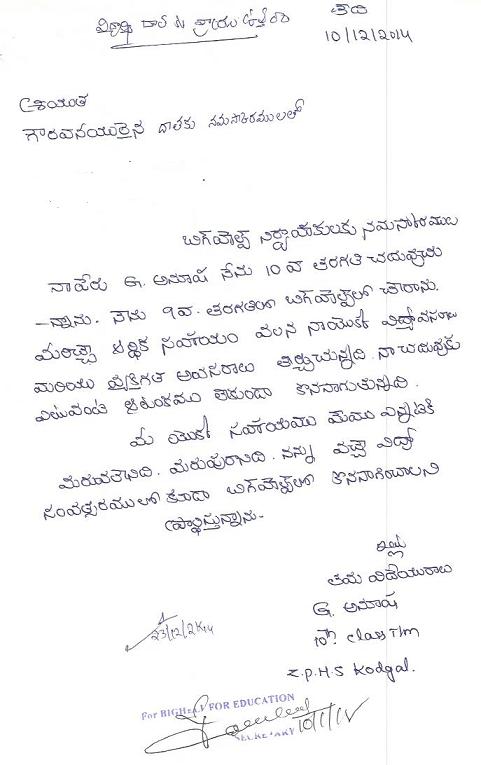 విద్యార్థి దాత కు వ్రాయు ఉత్తరం
తేది
10/12/2014
శ్రీయుత
గౌరవనీయులైన దాతకు నమస్కారములతో
బిగ్‌హెల్ప్ నిర్వాహకులకు నమస్కారములు
నా పేరు G. అనూష నేను 10 వ తరగతి చదువుచు
-న్నాను. నేను 9వ. తరగతిలో బిగ్‌హెల్ప్‌లో చేరాను.
మీరిచ్చే ఆర్థిక సహాయం వలన నాయొక్క విద్యావసరాలు
మరియు వ్యక్తిగత అవసరాలు తీర్చుచున్నది. నా చదువుకు
ఎటువంటి ఆటంకము లేకుండా కొనసాగుతున్నది.
మీ యొక్క సహాయము మేము ఎన్నటికి
మరువలేనిది. మరుపురానిది. నన్ను వచ్చే విద్యా
సంవత్సరములో కూడా బిగ్‌హెల్ప్‌లో కొనసాగించాలని
ప్రార్థిస్తున్నాను.
ఇట్లు
తమ విధేయురాలు
G. అనూష
10th class T/m
Z.P.H.S Kodgal.
23/12/2K14
For BIGHELP FOR EDUCATION
SECRETARY